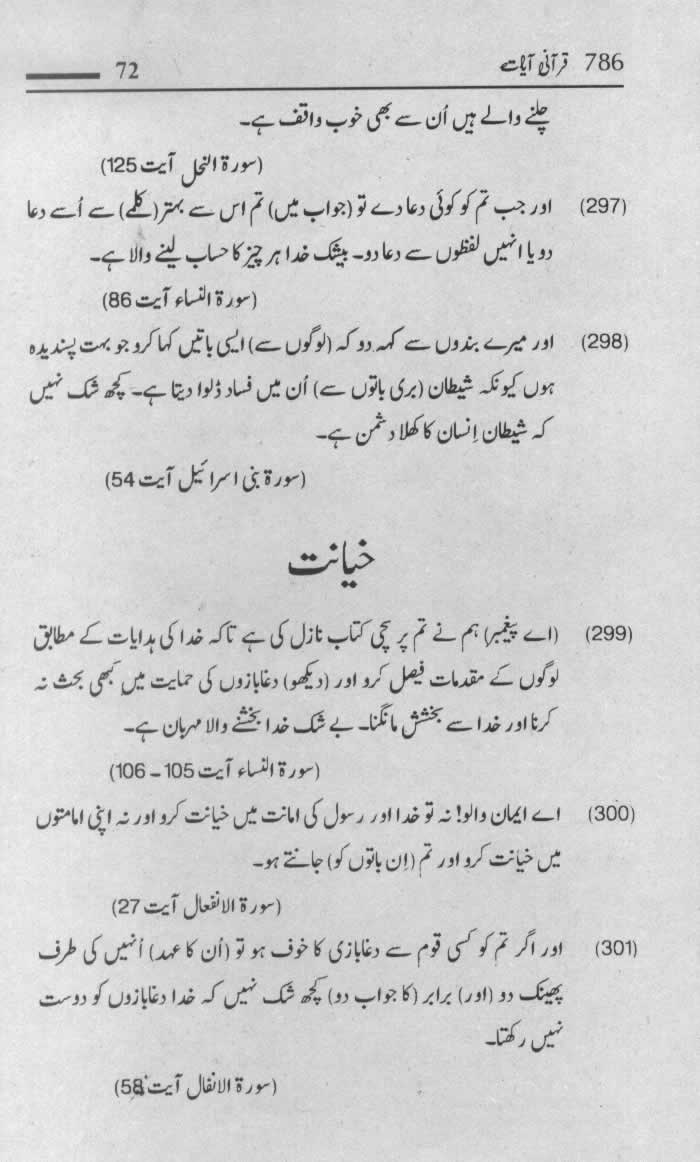 786 قرآنی آیات 72
چلنے والے ہیں اُن سے بھی خوب واقف ہے۔
(سورۃ النحل آیت 125)
(297) اور جب تم کو کوئی دعا دے تو (جواب میں) تم اس سے بہتر (کلمے) سے اُسے دعا
دو یا انہیں لفظوں سے دعا دو۔ بیشک خدا ہر چیز کا حساب لینے والا ہے۔
(سورۃ النساء آیت 86)
(298) اور میرے بندوں سے کہہ دو کہ (لوگوں سے) ایسی باتیں کہا کرو جو بہت پسندیدہ
ہوں کیونکہ شیطان (بری باتوں سے) اُن میں فساد ڈلوا دیتا ہے۔ کچھ شک نہیں
کہ شیطان اِنسان کا کھلا دشمن ہے۔
(سورۃ بنی اسرائیل آیت 54)
خیانت
(299) (اے پیغمبر) ہم نے تم پر سچی کتاب نازل کی ہے تاکہ خدا کی ہدایات کے مطابق
لوگوں کے مقدمات فیصل کرو اور (دیکھو) دغابازوں کی حمایت میں کبھی بحث نہ
کرنا اور خدا سے بخشش مانگنا۔ بے شک خدا بخشنے والا مہربان ہے۔
(سورۃ النساء آیت 105 ـ 106)
(300) اے ایمان والو! نہ تو خدا اور رسول کی امانت میں خیانت کرو اور نہ اپنی امامتوں
میں خیانت کرو اور تم (اِن باتوں کو) جانتے ہو۔
(سورۃ الانفعال آیت 27)
(301) اور اگر تم کو کسی قوم سے دغابازی کا خوف ہو تو (اُن کا عہد) اُنہیں کی طرف
پھینک دو (اور) برابر (کا جواب دو) کچھ شک نہیں کہ خدا دغابازوں کو دوست
نہیں رکھتا۔
(سورۃ الانفال آیت 58)